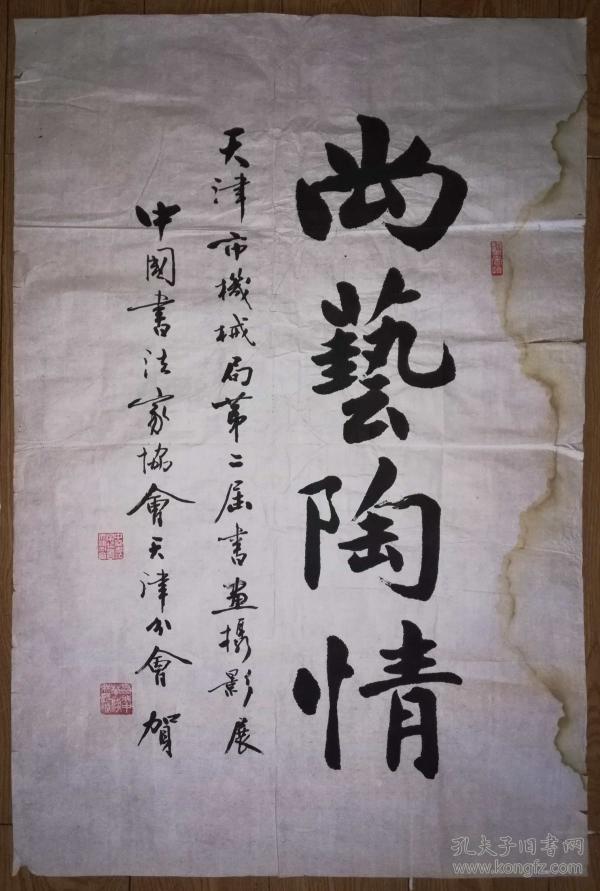 尚藝陶情
天津市機械局第二届書画攝影展
中國書法家協會天津分會 賀
孔夫子旧书网
www.kongfz.com